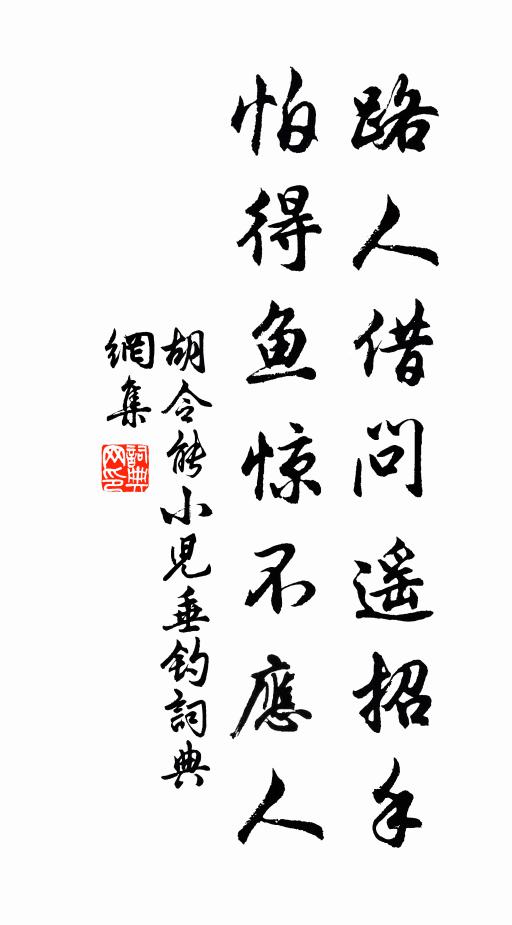 路人借问遥招手
怕得鱼惊不應人
胡令能小児垂钓詞典
網集
詞典
网印